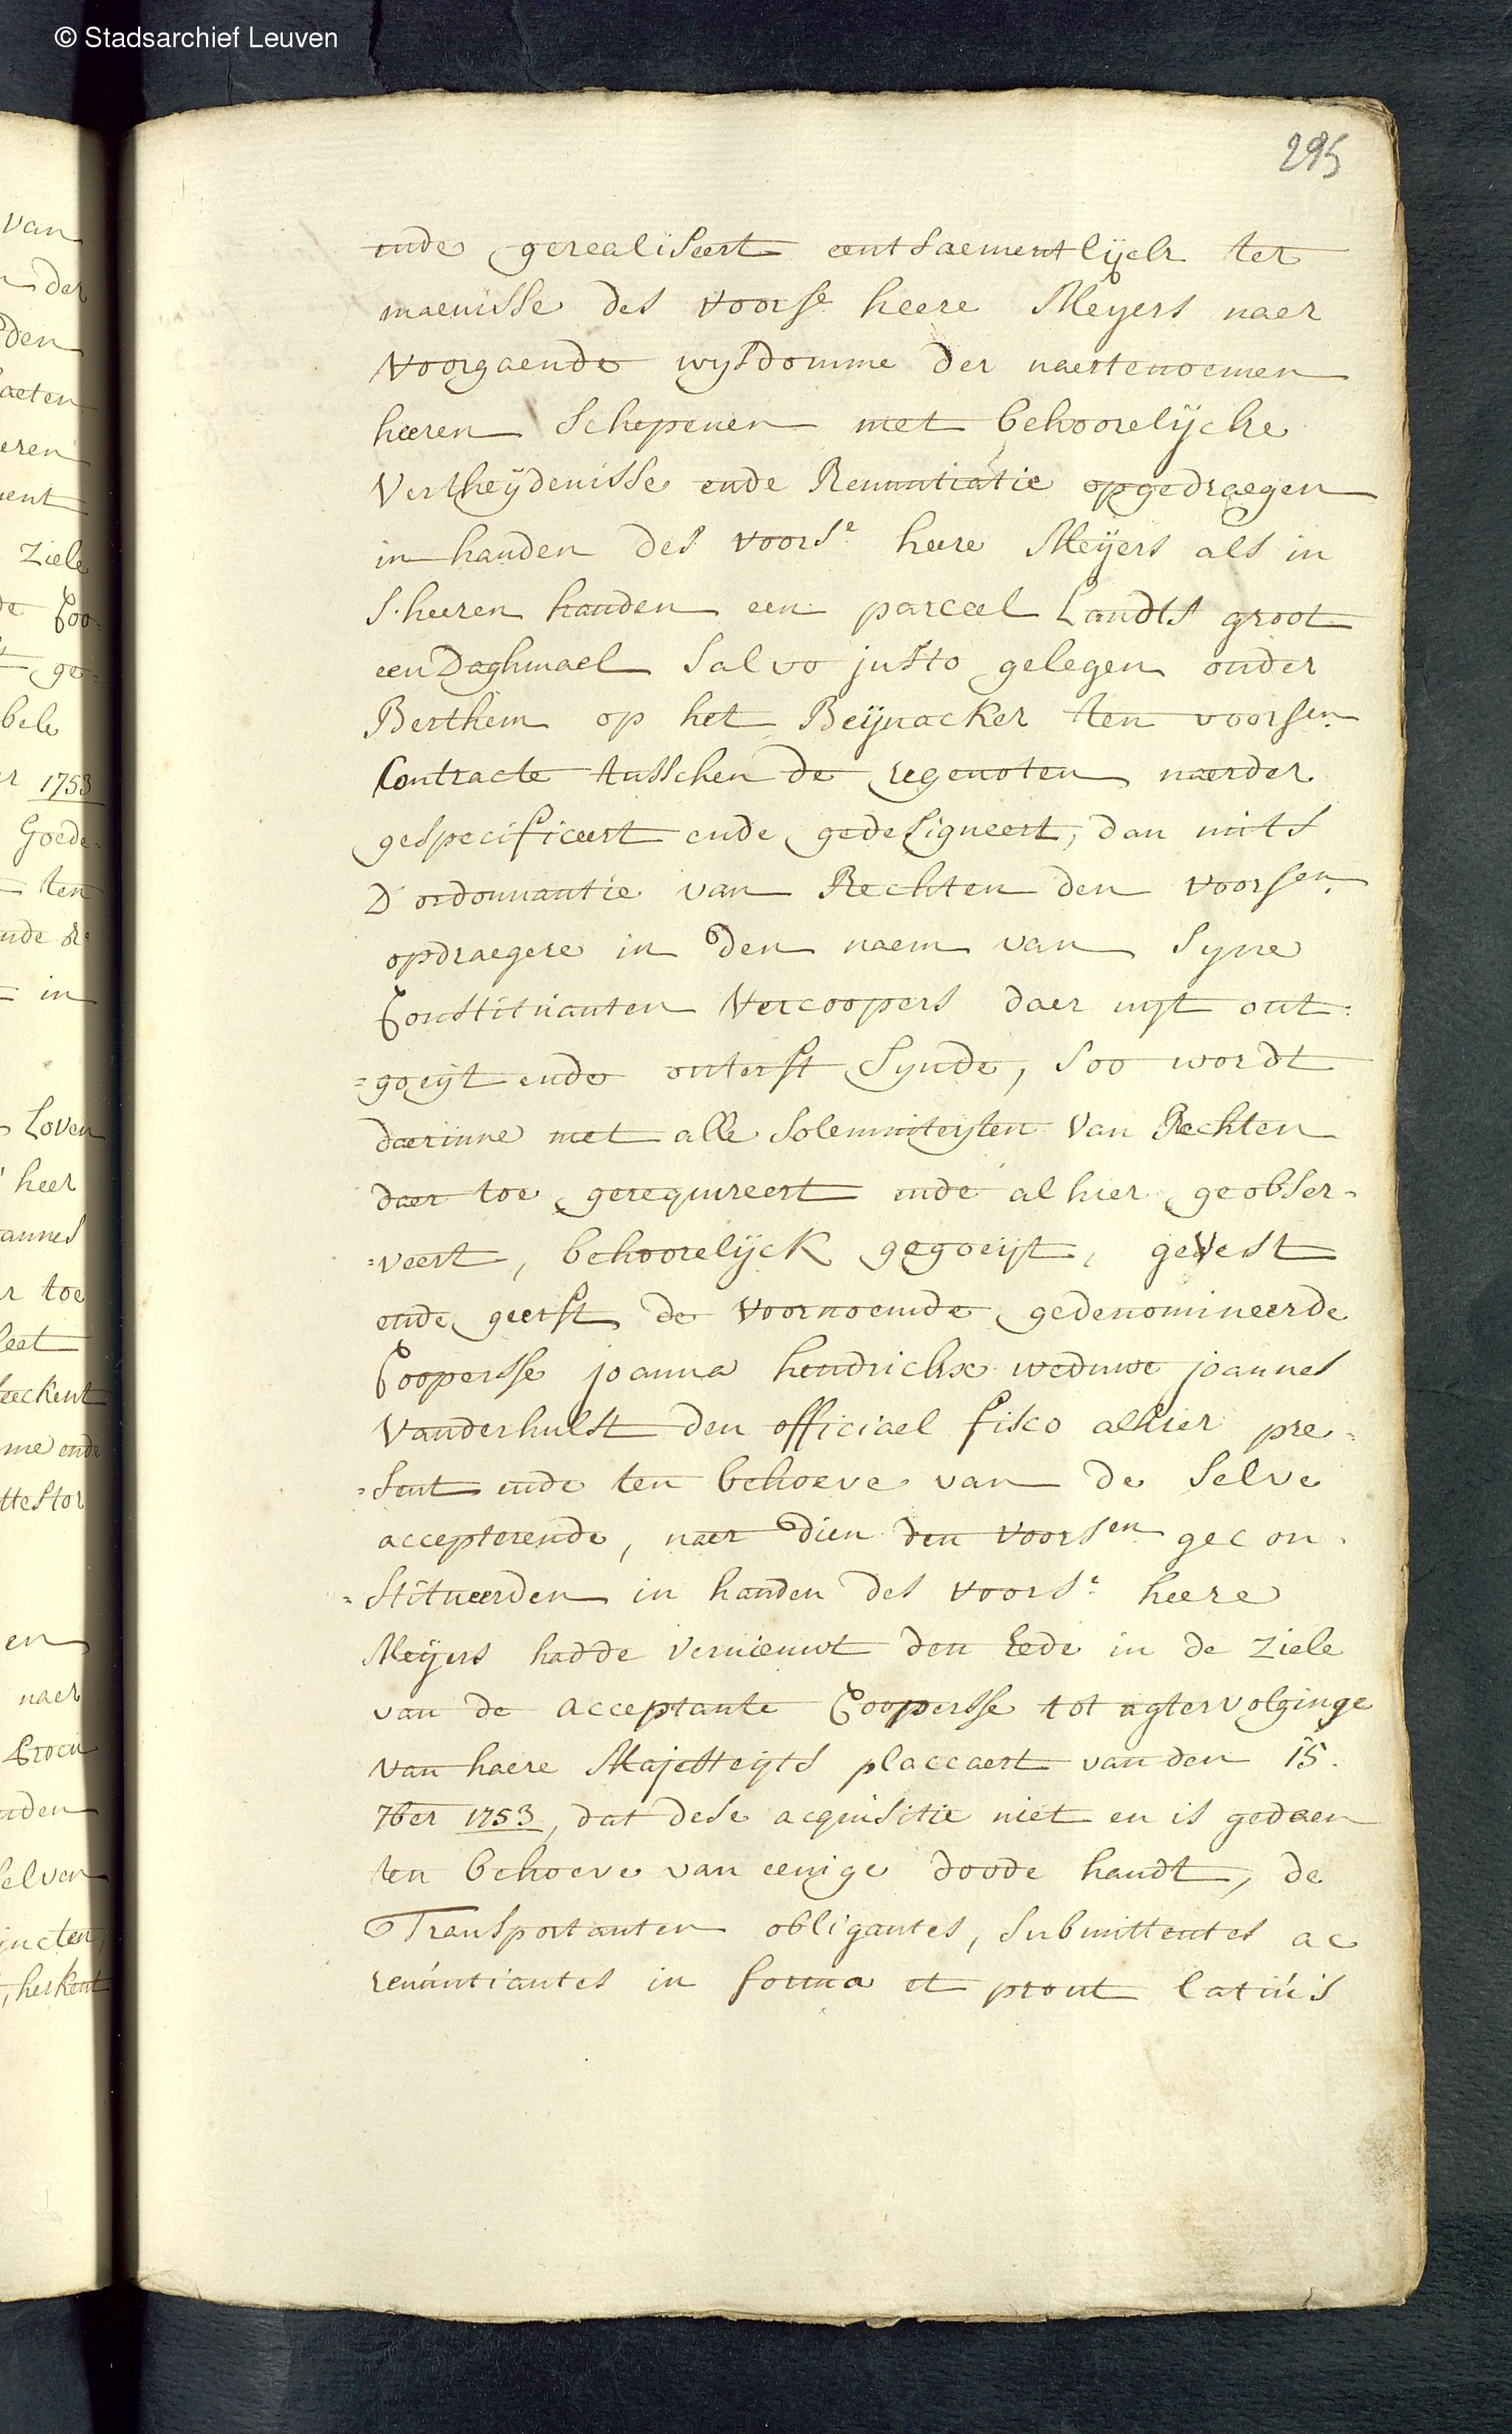 © Stadsarchief Leuven
295
van
der
den
aeten
eren
ent
Ziele
de Coo-
ge=
bele
er 1753
Goede-
ten
ende de
in
Loven
heer
annes
er toe
leet
eeckent
me ende
ttestor
en
naer
Croen
nden
selven
jncten,
, herkent
ende gerealiseert eentsaementlijck ter
maenisse des voorse heere Meyers naer
voorgaende wysdomme der naertenoemen
heeren Schepenen met behoorelijcke
Vertheijdenisse ende Renuntiatie opgedraegen
in handen des voorse heere Meijers als in
s.heeren handen een parceel Landts groot
een Daghmael salvo justo gelegen onder
Berthem op het Beijnacker ten voorsen
Contracte tusschen de regenoten naerder
gespecificeert ende gedesigneert, dan mits
D'ordonnantie van Rechten den voorsen
opdraegere in den naem van syne
Constituanten Vercoopers daer uyt ont=
=goeyt ende onterft synde, soo wordt
daerinne met alle solemniteyten van Rechten
daer toe gerequireert ende alhier geobser-
=veert, behoorelijck gegoeijt, gevest
ende geerft de voornoemde gedenomineerde
Coopersse joanna hendrickx weduwe joannes
Vanderhulst den officiael fisco alhier pre=
=sent ende ten behoeve van de selve
accepterende, naer dien den voorsen gecon-
=stitueerden in handen des voorse heere
Meijers hadde vernieuwt den Eede in de ziele
van de acceptante Coopersse tot agtervolginge
van haere Majesteyts placcaert van den 15.
7ber 1753, dat dese acquisitie niet en is gedaen
ten behoeve van eenige doode handt, de
Transportanten obligantes, submittentes ac
renuntiantes in forma et prout latius